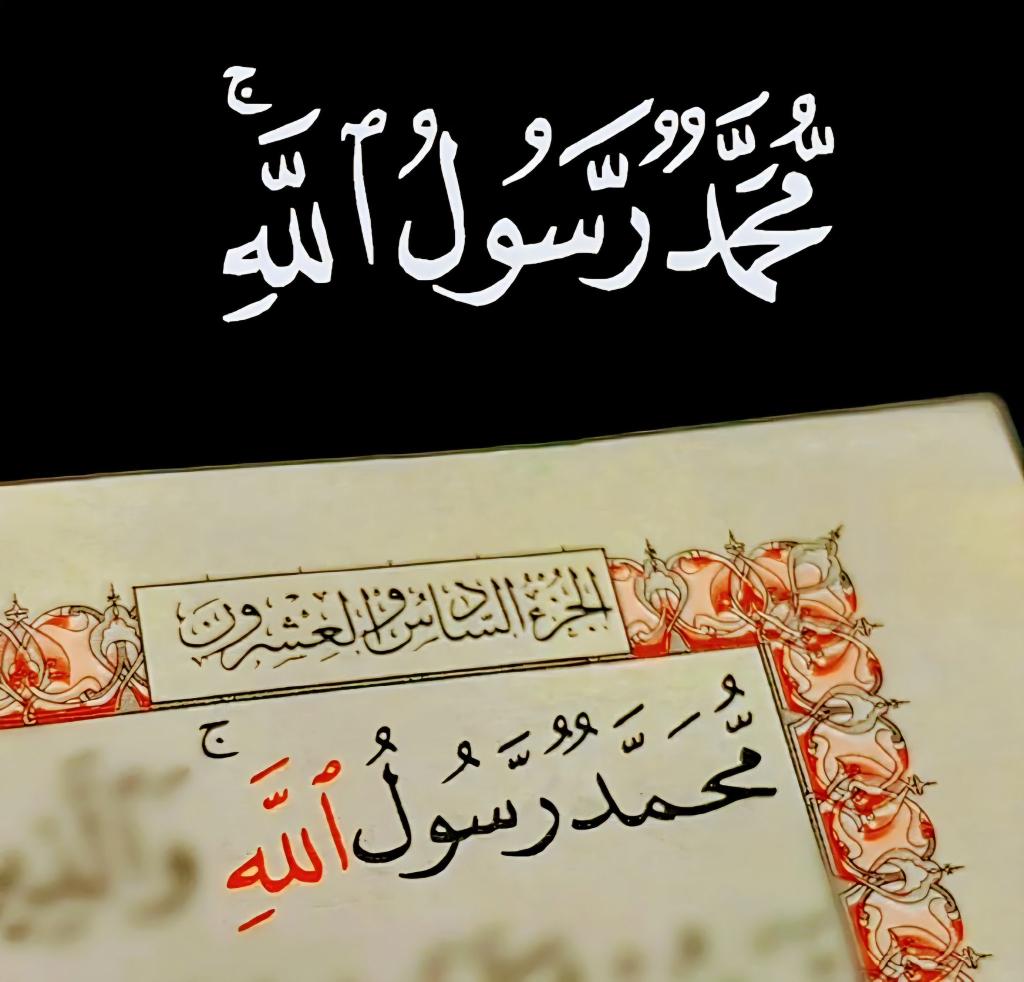 مُّحَمَّدٌ رَّسُولُ ٱللَّهِ ۚ
الجُزءُ السَّادسُ وَالعِشرُونَ
مُّحَمَّدٌ رَّسُولُ ٱللَّهِ ۚ